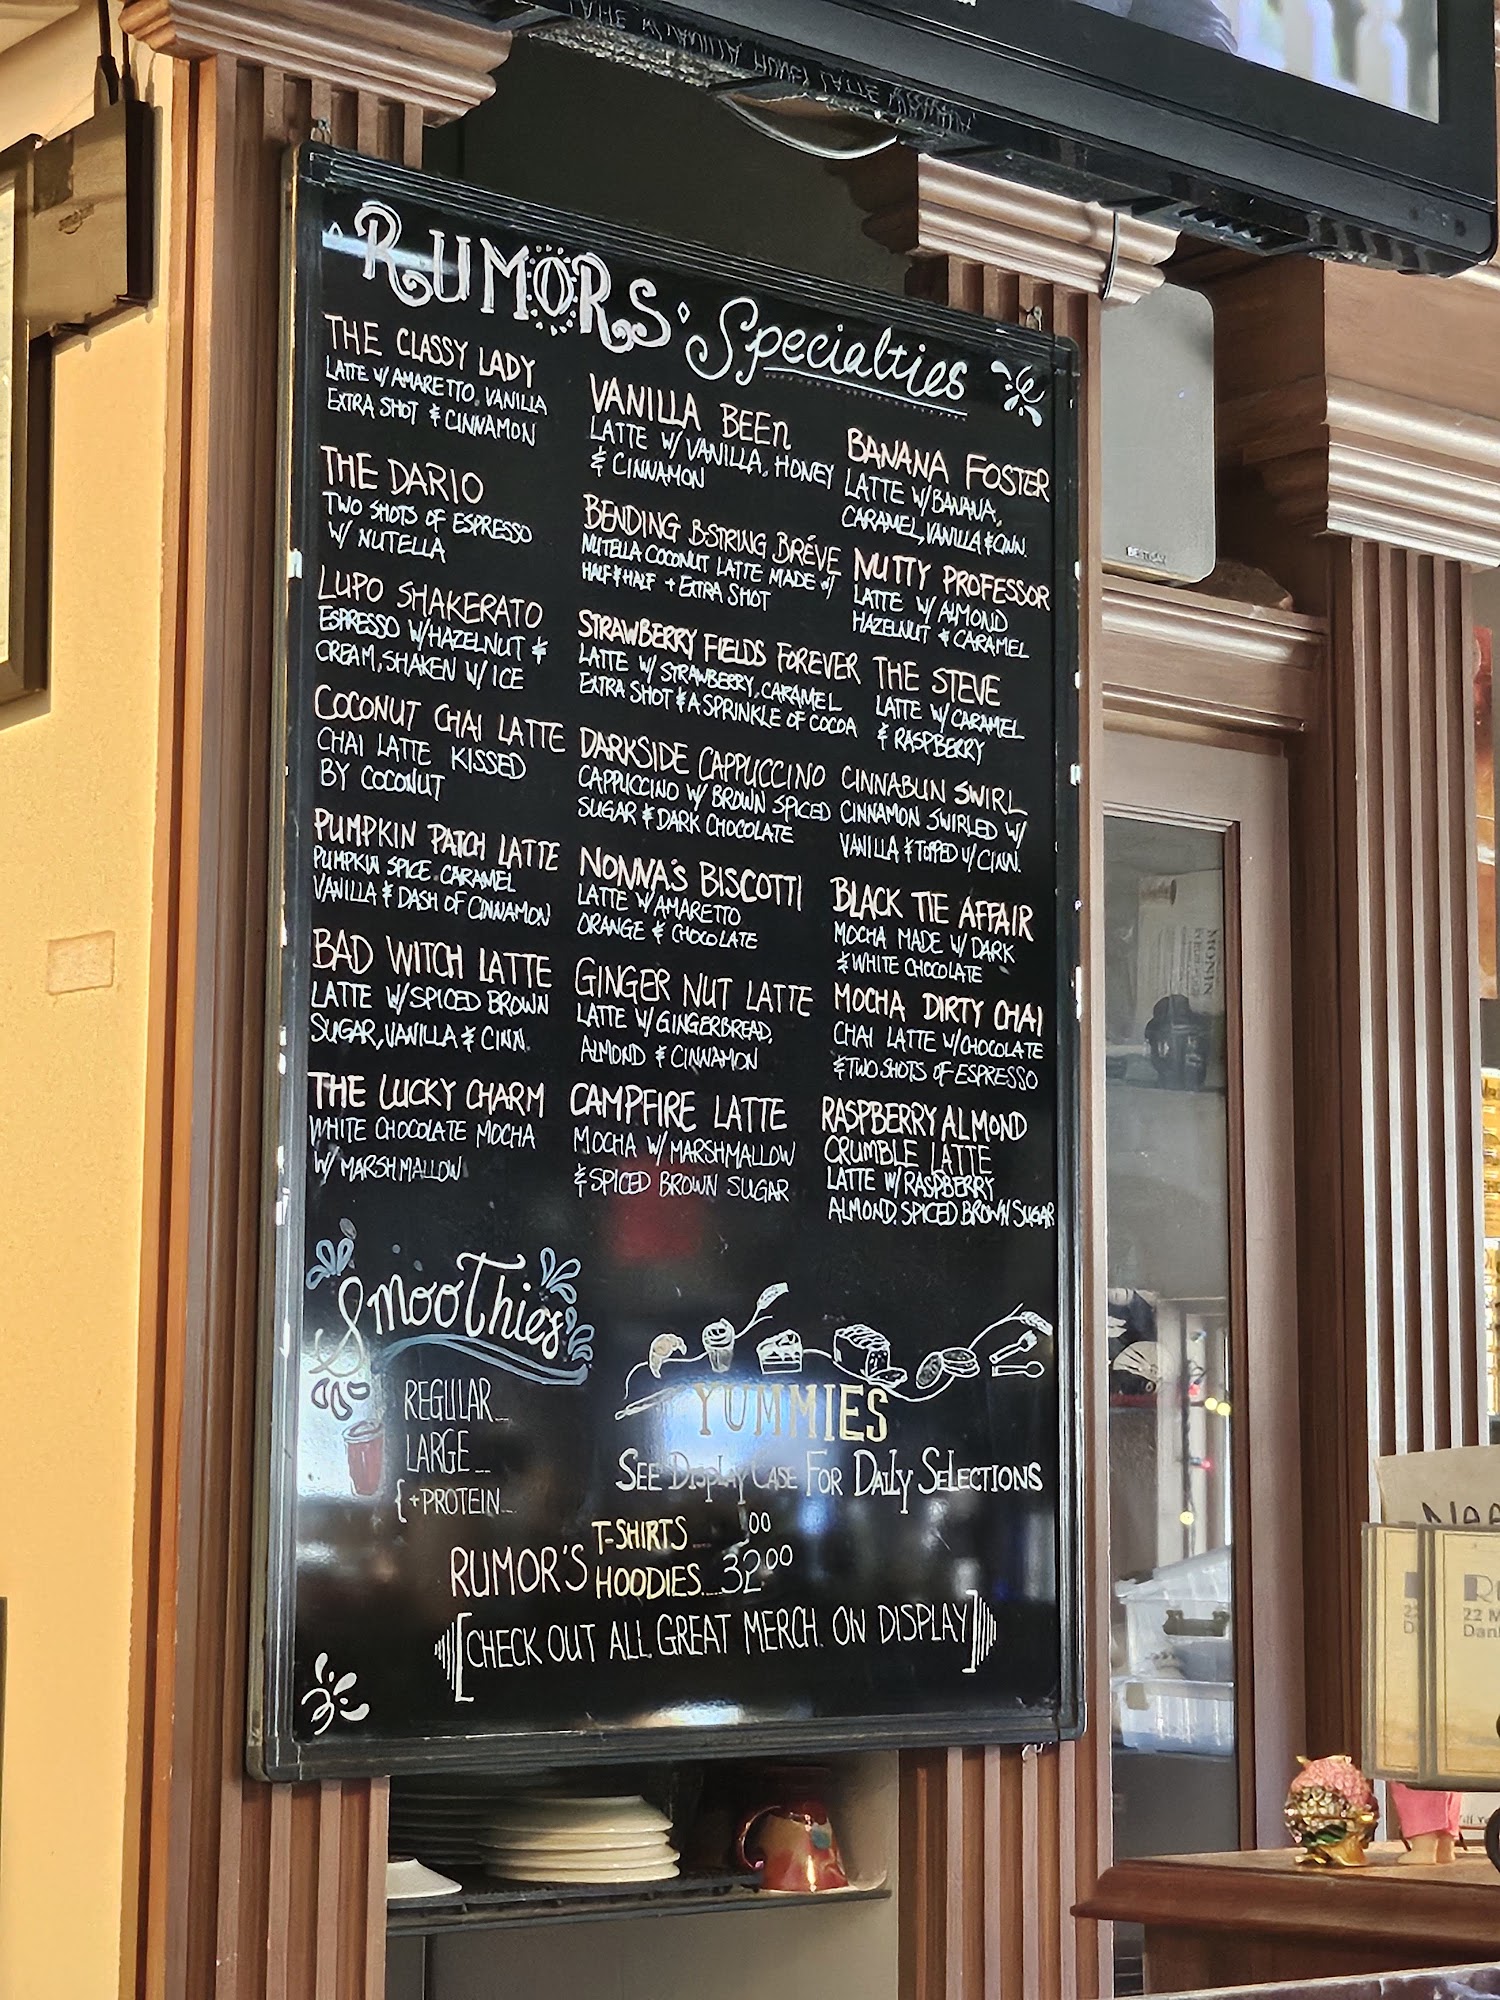 RUMORS' Specialties
THE CLASSY LADY
LATTE W/ AMARETTO, VANILLA
EXTRA SHOT & CINNAMON
THE DARIO
TWO SHOTS OF ESPRESSO
W/ NUTELLA
LUPO SHAKERATO
ESPRESSO W/HAZELNUT &
CREAM, SHAKEN W/ ICE
COCONUT CHAI LATTE
CHAI LATTE KISSED
BY COCONUT
PUMPKIN PATCH LATTE
PUMPKIN SPICE CARAMEL
VANILLA & DASH OF CINNAMON
BAD WITCH LATTE
LATTE W/SPICED BROWN
SUGAR, VANILLA & CINN.
THE LUCKY CHARM
WHITE CHOCOLATE MOCHA
W/ MARSHMALLOW
VANILLA BEEn
LATTE W/ VANILLA, HONEY
& CINNAMON
BENDING BSTRING BRÉVE
NUTELLA COCONUT LATTE MADE W/
HALF&HALF + EXTRA SHOT
STRAWBERRY FIELDS FOREVER
LATTE W/ STRAWBERRY, CARAMEL
EXTRA SHOT & A SPRINKLE OF COCOA
DARKSIDE CAPPUCCINO
CAPPUCCINO W/ BROWN SPICED
SUGAR & DARK CHOCOLATE
NONNA'S BISCOTTI
LATTE W/AMARETTO
ORANGE & CHOCOLATE
GINGER NUT LATTE
LATTE W/ GINGERBREAD,
ALMOND & CINNAMON
CAMPFIRE LATTE
MOCHA W/ MARSHMALLOW
& SPICED BROWN SUGAR
BANANA FOSTER
LATTE W/BANANA,
CARAMEL, VANILLA & CINN.
NUTTY PROFESSOR
LATTE W/ ALMOND
HAZELNUT & CARAMEL
THE STEVE
LATTE W/ CARAMEL
& RASPBERRY
CINNABUN SWIRL
CINNAMON SWIRLED W/
VANILLA & TOPPED W/ CINN.
BLACK TIE AFFAIR
MOCHA MADE W/ DARK
& WHITE CHOCOLATE
MOCHA DIRTY CHAI
CHAI LATTE W/CHOCOLATE
& TWO SHOTS OF ESPRESSO
RASPBERRY ALMOND
CRUMBLE LATTE
LATTE W/ RASPBERRY
ALMOND, SPICED BROWN SUGAR
SmooThies
REGULAR...
LARGE...
{+PROTEIN...
YUMMIES
SEE DISPLAY CASE FOR DAILY SELECTIONS
RUMOR'S
T-SHIRTS 00
HOODIES....32.00
[CHECK OUT ALL GREAT MERCH. ON DISPLAY]